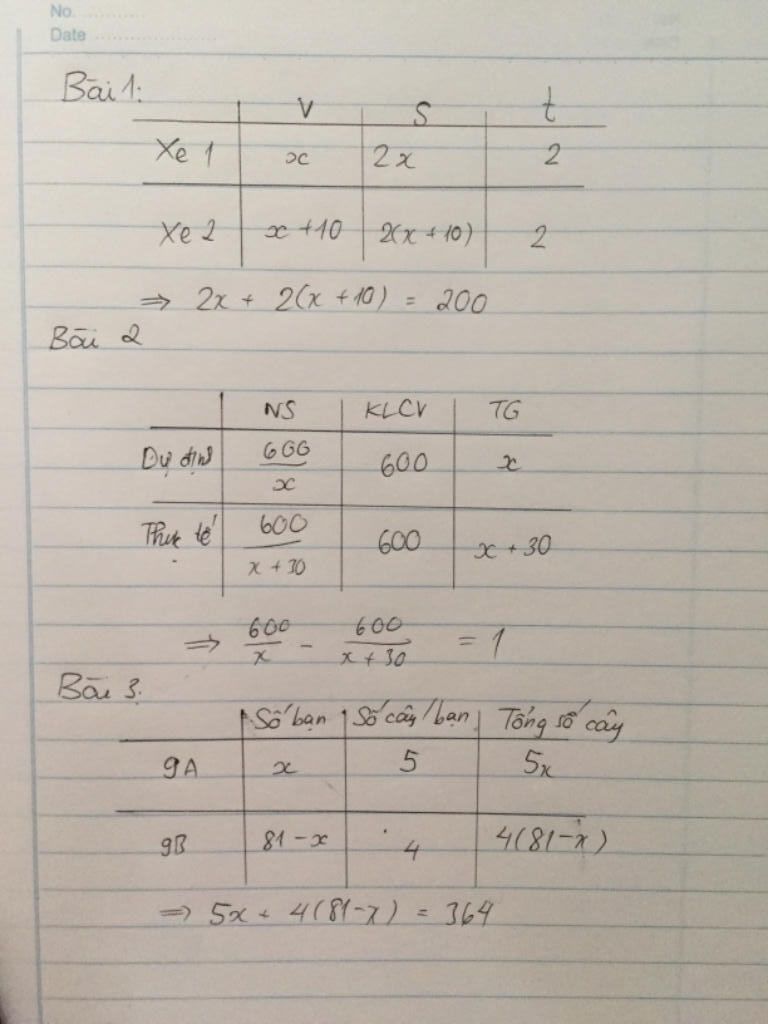 No.
Date
Bài 1:
V S t
Xe 1 x 2x 2
Xe 2 x + 10 2(x + 10) 2
⇒ 2x + 2(x + 10) = 200
Bài 2
NS KLCV TG
Dự định 600/x 600 x
Thực tế 600/(x + 30) 600 x + 30
⇒ 600/x - 600/(x + 30) = 1
Bài 3:
Số bạn Số cây/bạn Tổng số cây
9A x 5 5x
9B 81 - x 4 4(81 - x)
⇒ 5x + 4(81 - x) = 364